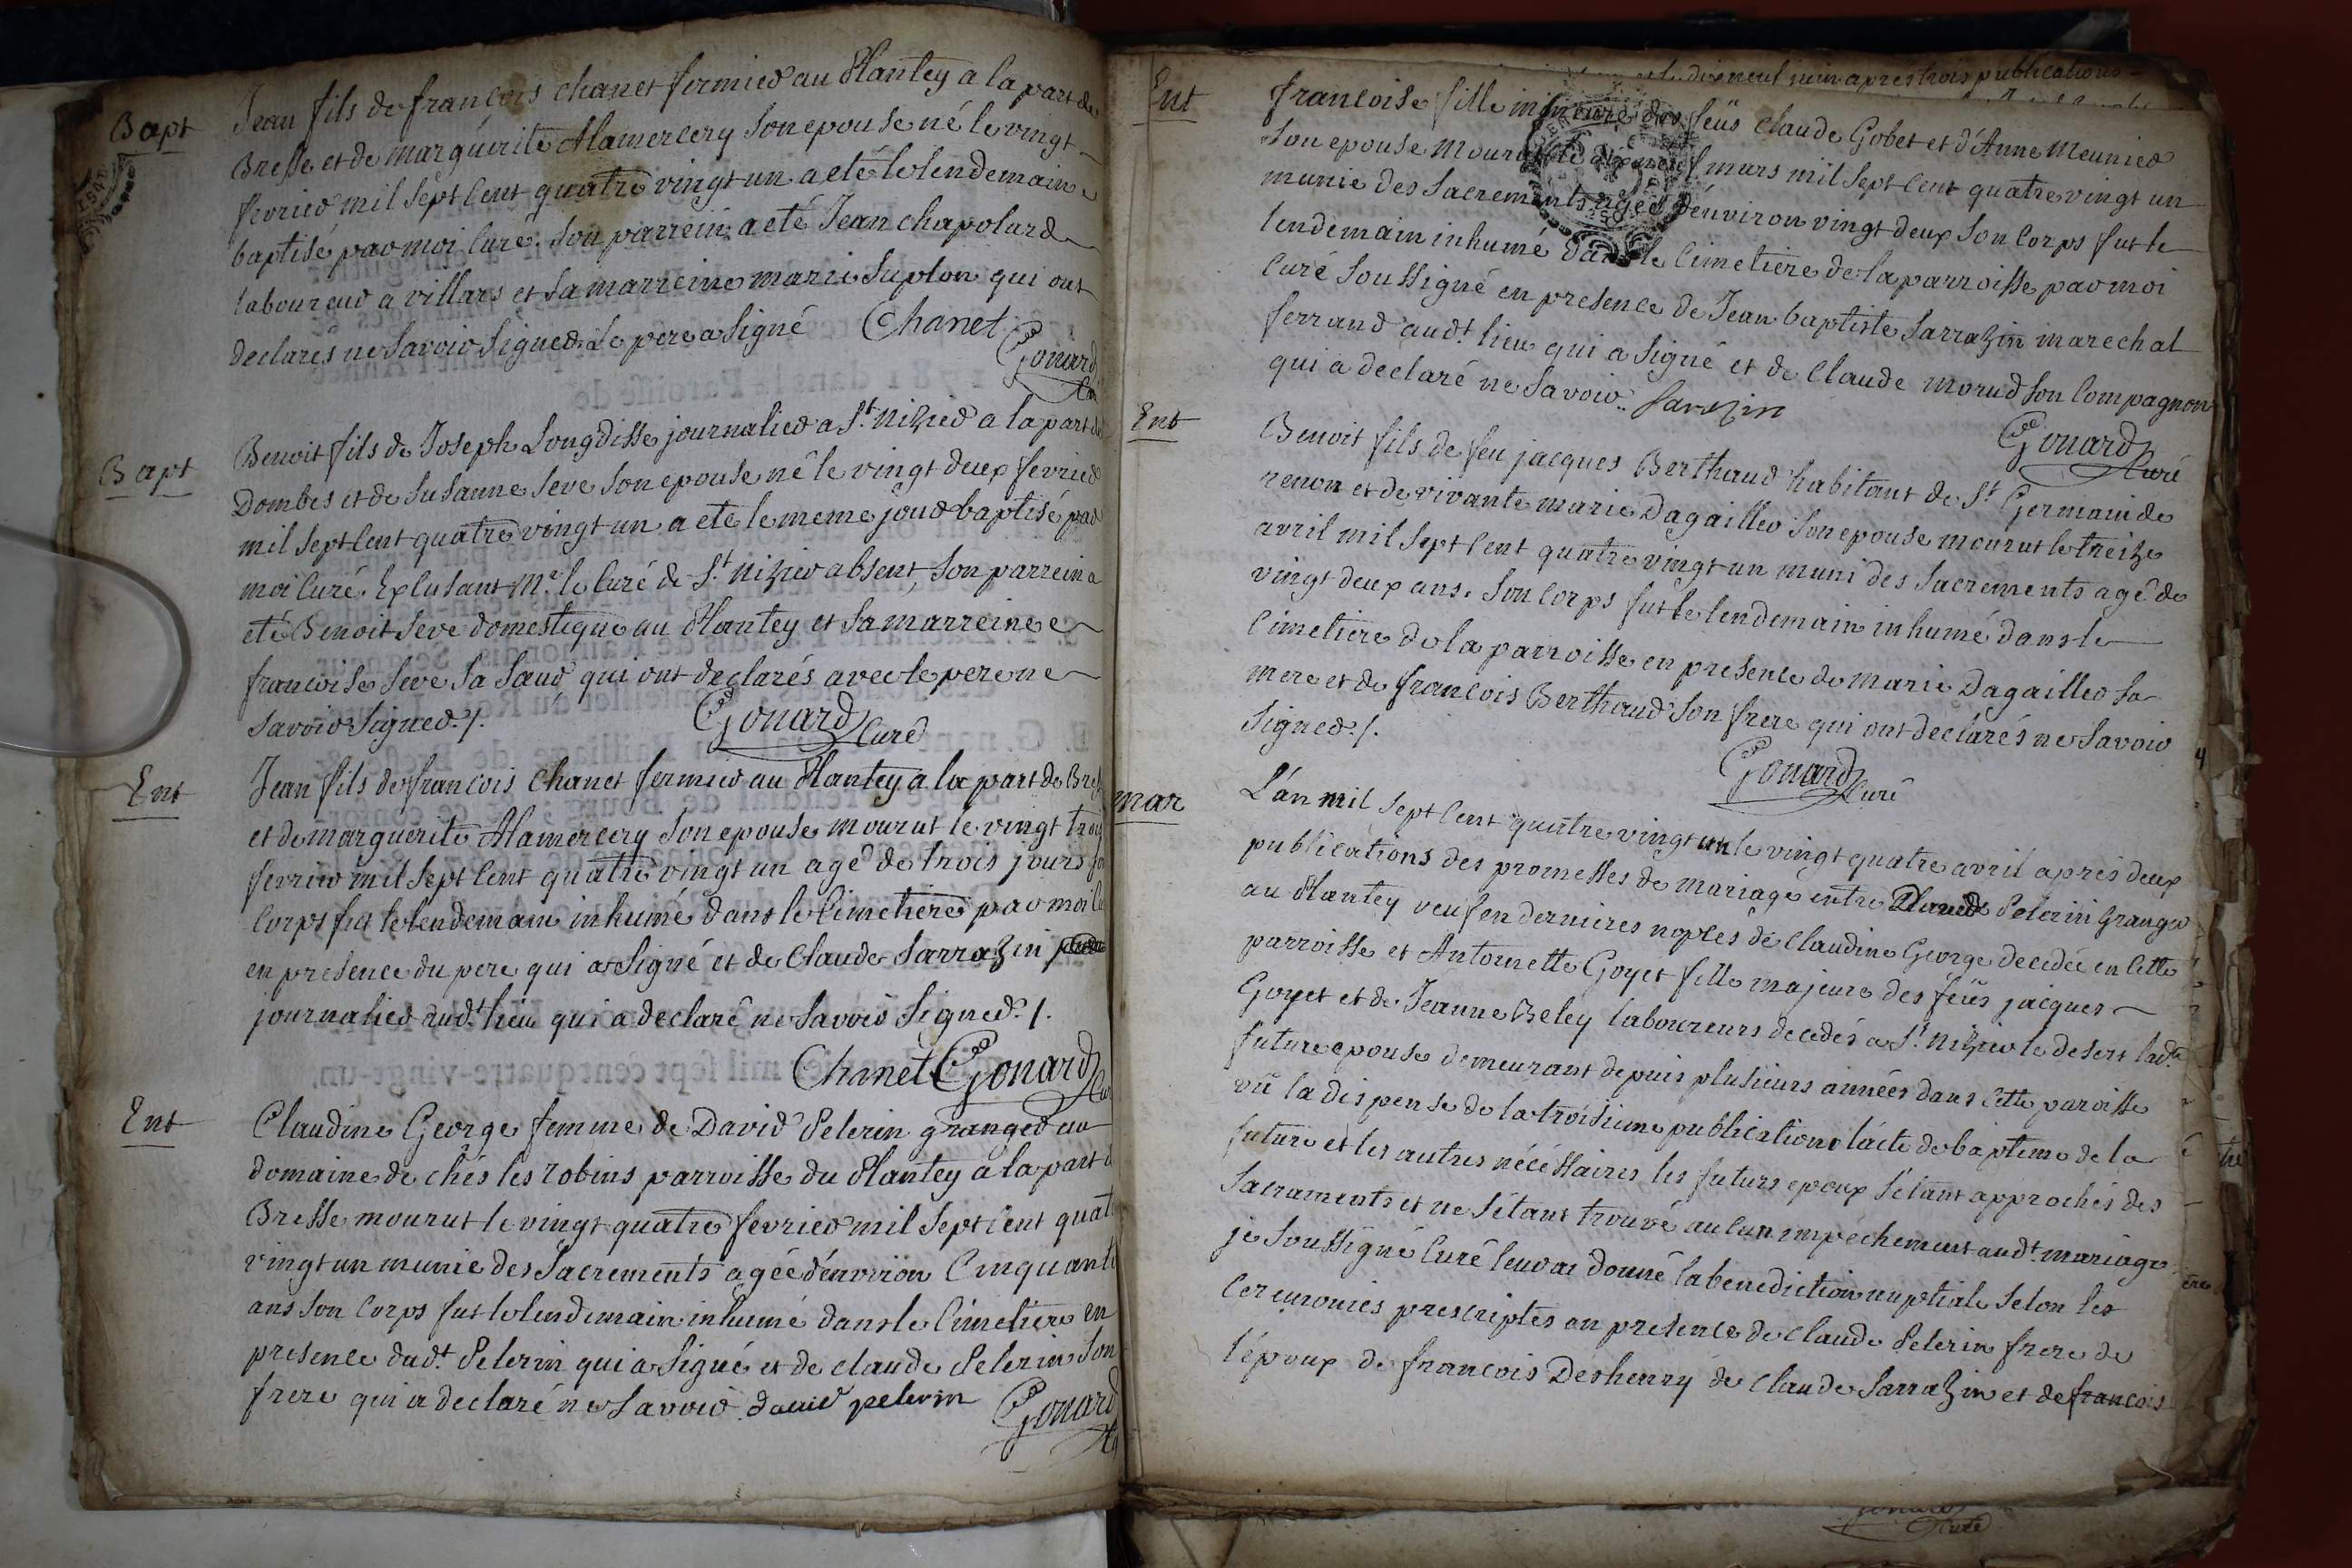 Bapt
Jean fils de françois chanet fermier au Plantey a la part de
Bresse et de marguérite Alamercery son epouse né le vingt
fevrier mil sept cent quatre vingt un a eté le lendemain
baptisé par moi curé. son parrein a eté Jean chapolard
laboureur a villars et sa marreine marie suplon qui ont
declarés ne savoir signer. Le pere a signé Chanet
Gonard
Bapt
Benoit fils de Joseph Longdisse journalier a St. nizier a la part de
Dombes et de susanne seve son epouse né le vingt deux fevrier
mil sept cent quatre vingt un a eté le meme jour baptisé par
moi curé. Excusant Mr. le curé de St. nizier absent, son parrein a
eté Benoit seve domestique au Plantey et sa marreine
francoise seve sa sœur qui ont declarés avec le pere ne
savoir signer./.
Gonard Curé
Ent
Jean fils de francois chanet fermier au Plantey a la part de Bres
et de marguerite Alamercery son epouse mourut le vingt trois
fevrier mil sept cent quatre vingt un agé de trois jours son
corps fut le lendemain inhumé dans le cimetiere par moi
en presence du pere qui a signé et de claude sarrazin
journalier aud. lieu qui a declaré ne savoir signer./.
Chanet Gonard
Ent
Claudine George femme de David Pelerin granger au
domaine de chés les robins parroisse du Plantey a la part
Bresse mourut le vingt quatre fevrier mil sept cent quat
vingt un munie des sacrements agée d'environ cinquante
ans son corps fut le lendemain inhumé dans le cimetiere en
presence dudt. Pelerin qui a signé et de claude Pelerin son
frere qui a declaré ne savoir david pelerin
Gonard
dix neuf juin apres trois publications
Ent
francoise fille mineure des feüs claude Gobet et d'Anne meunier
son epouse mourut le dix neuf mars mil sept cent quatre vingt un
munie des sacrements agée d'environ vingt deux son corps fut le
lendemain inhumé dans le cimetiere de la parroisse par moi
curé soussigné en presence de Jean baptiste sarrazin marechal
ferrand audt. lieu qui a signé et de claude morud son compagnon
qui a declaré ne savoir. sarazin
Gonard Curé
Ent
Benoit fils de feu jacques Berthaud habitant de St Germain de
renon et de vivante marie Dagailler son epouse mourut le treize
avril mil sept cent quatre vingt un muni des sacrements agé de
vingt deux ans. son corps fut le lendemain inhumé dans le
cimetiere de la parroisse en presence de marie Dagailler sa
mere et de francois Berthaud son frere qui ont declarés ne savoir
signer./.
Gonard Curé
4
mar
L'an mil sept cent quatre vingt un le vingt quatre avril aprés deux
publications des promesses de mariage entre David Pelerin Granger
au Plantey veuf en dernieres noples de claudine George decedée en cette
parroisse et Antoinette Goyet fille majeure des feüs jacques
Goyet et de Jeanne Beley laboureurs decedés a St. nizier le desert ladte.
future epouse demeurant depuis plusieurs années dans cette paroisse
vû la dispense de la troisieme publication l'acte de bapteme de la
future et les autres nécéssaires les futurs epoux s'etant approchés des
sacraments et ne s'étant trouvé aucun impéchement audt. mariage
je soussigné curé leur ai donné la benediction nuptiale selon les
ceremonies prescriptes en presence de claude Pelerin frere de
l'époux de francois Deshenry de claude sarrazin et de francois
Curé